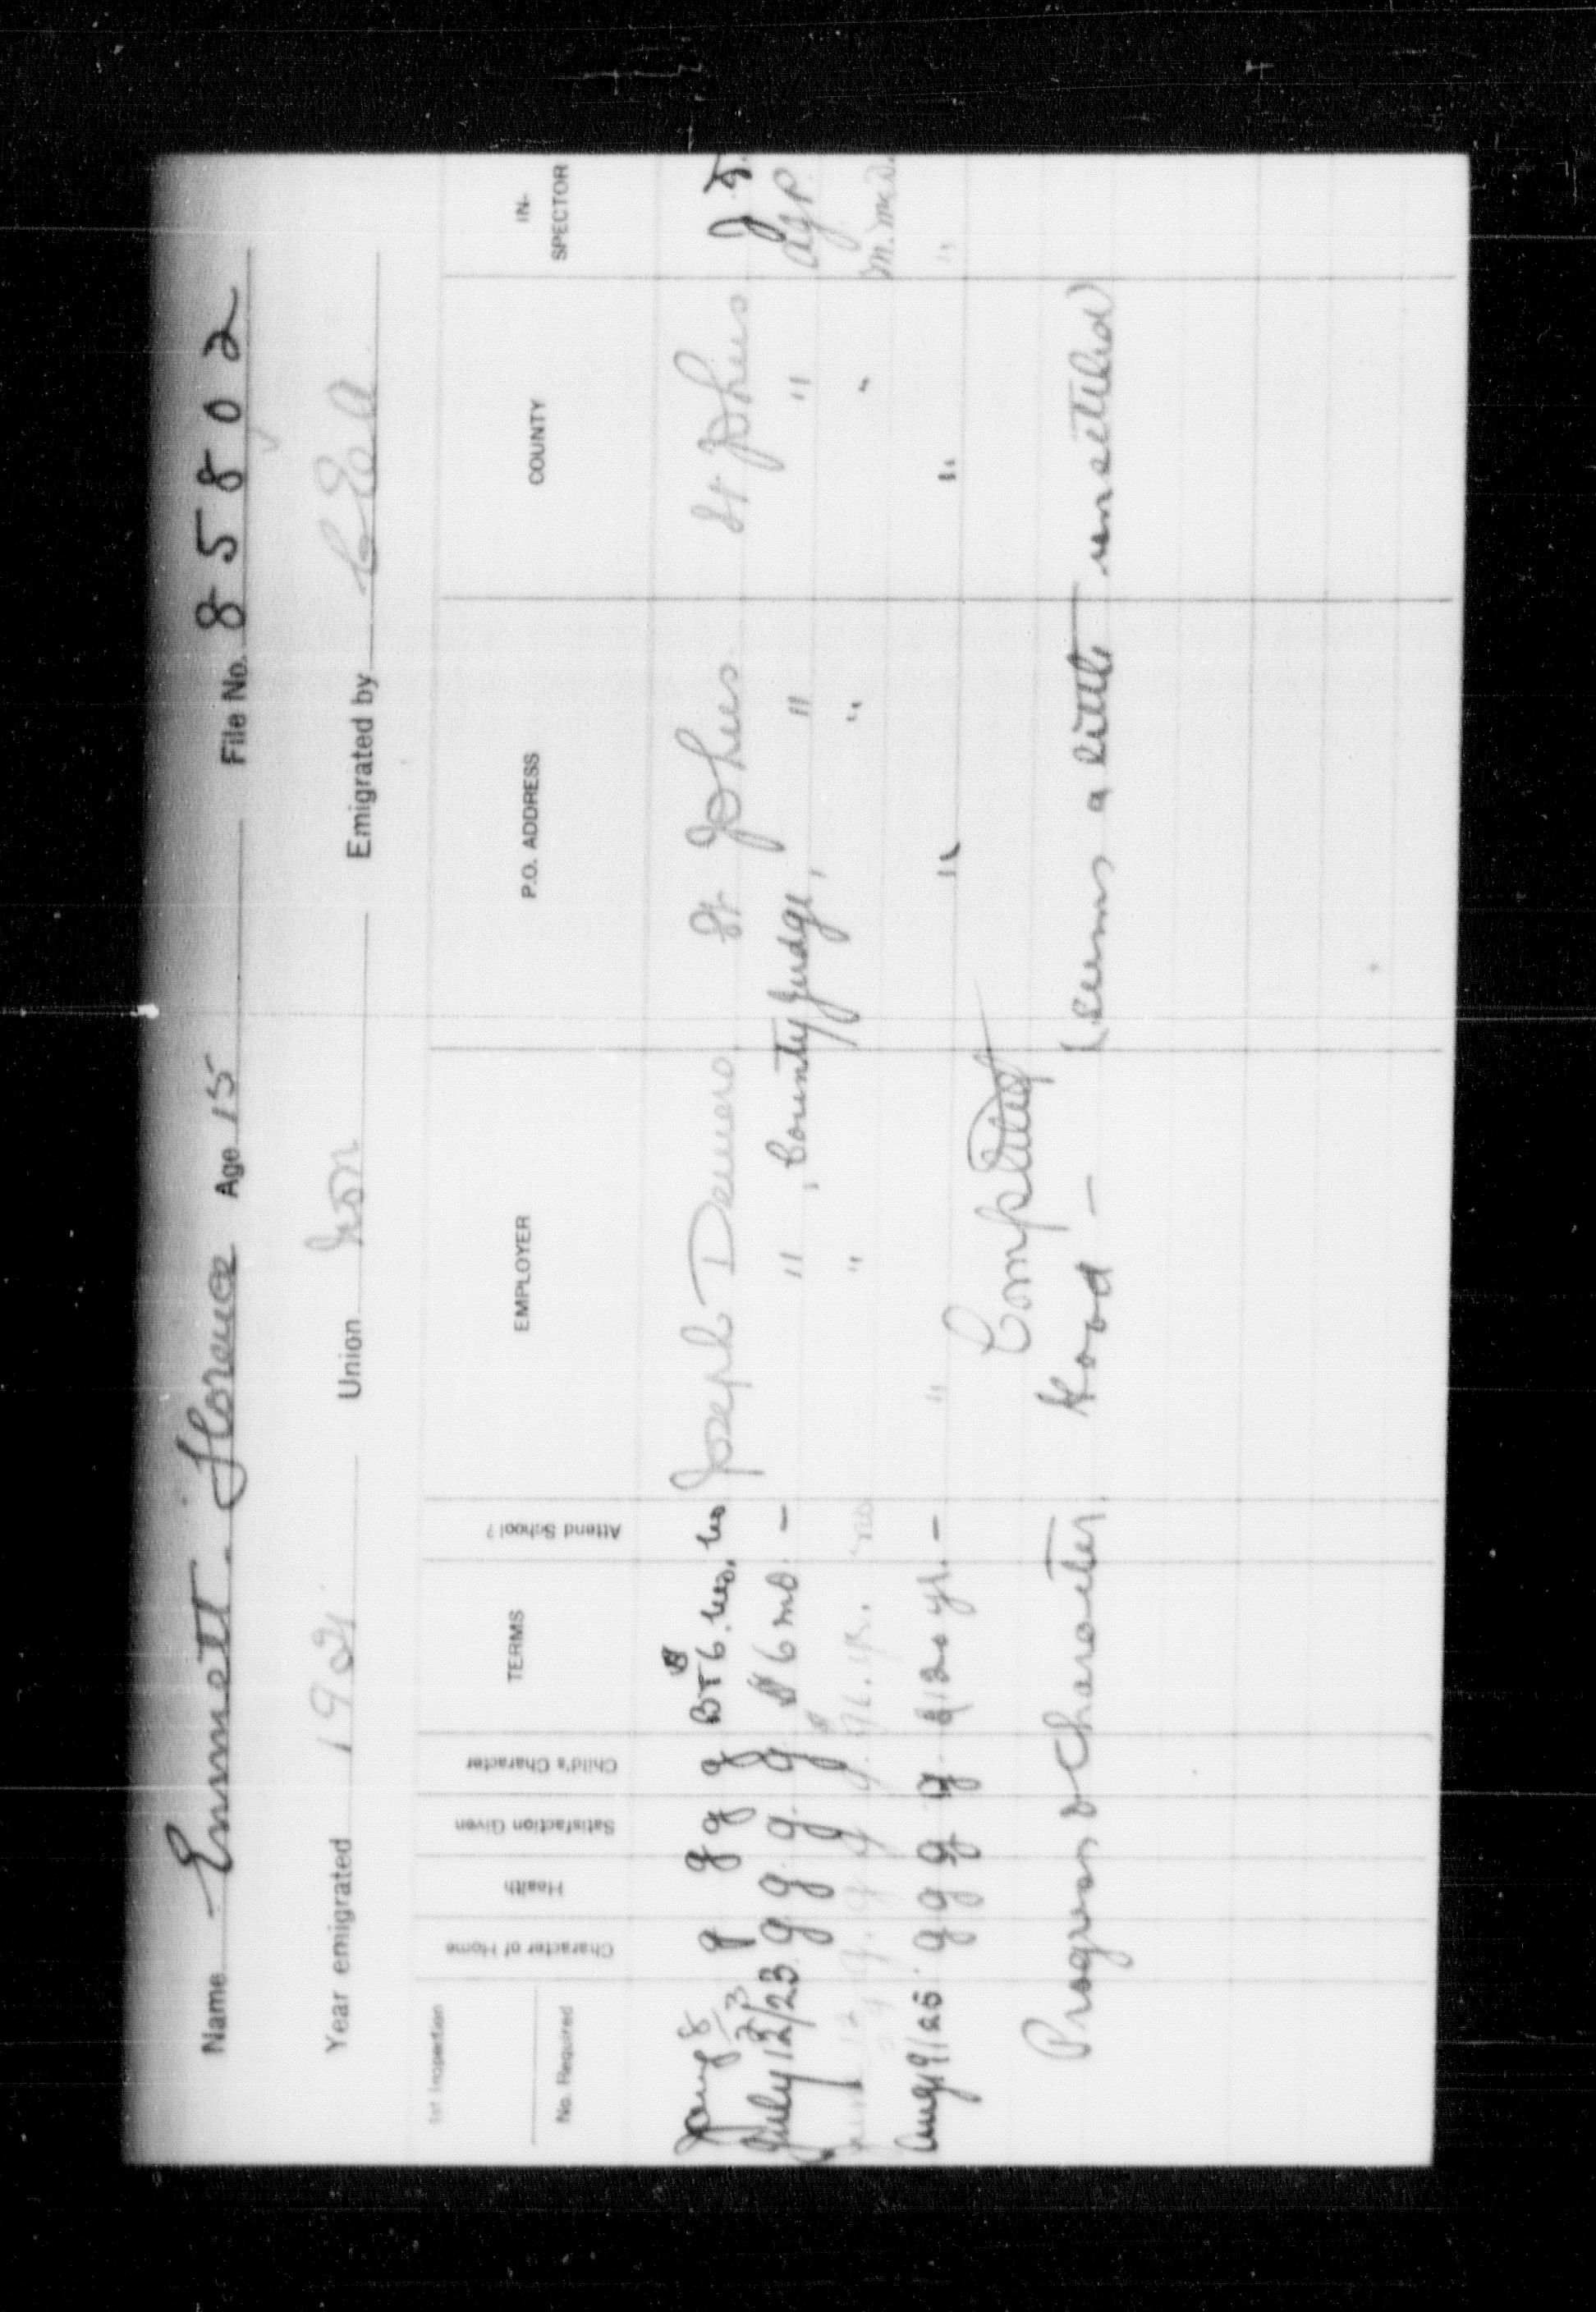 Name Emmett. Florence Age 15 File No. 85802
Year emigrated 192 Union non Emigrated by
1st Inspection
No. Required
Character of Home Health Satisfaction Given Child's Character TERMS Attend School? EMPLOYER P.O. ADDRESS COUNTY IN-SPECTOR
8/23 g g g g Joseph St Johns St Johns J.
July 12/23 g g g g 6 mo - " , County Judge, " " agp
g. g. g g. yr. no " " " m.mcd.
Aug 19/25 g g g g yr. - " " " "
Completed
Progress & Character, Good - seems a little unsettled